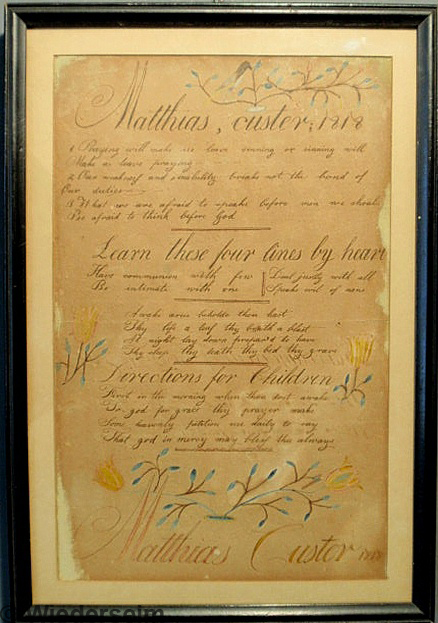 Matthias, custer, 1818
1 Praying will make us leave sinning or sinning will
Make us leave praying
2 Our weakness and inability breaks not the bond of
Our duties
3 What we are afraid to speake before men we should
Be afraid to think before God
Learn these four lines by heart
Have communion with few Deal justly with all
Be intimate with one Speake evil of none
Awake arise beholde thou hast
Thy life a leaf thy breath a blast
At night lay down prepar'd to have
Thy sleep thy death thy bed thy grave
Directions for Children
in the morning when thou dost awake
To god for grace thy prayer make
Some heavenly petition use daily to say
That god in mercy may bless the always
Matthias Custer 1818
© Wiederseim